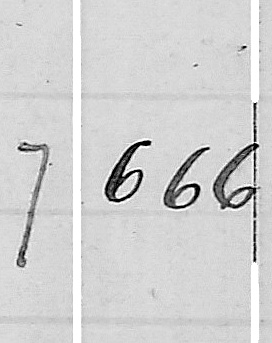 7 666